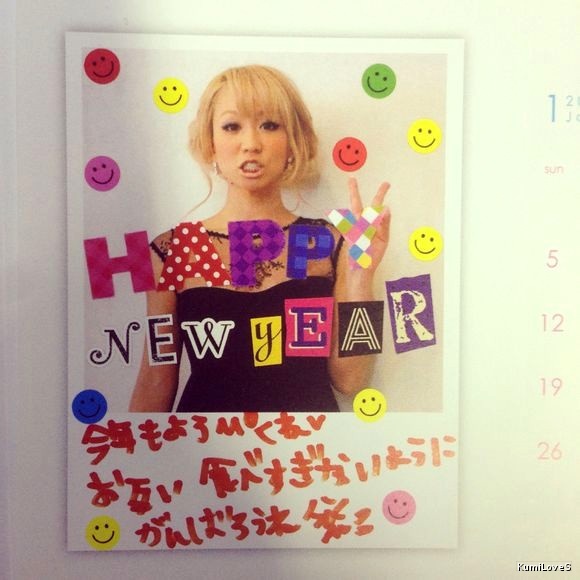 HAPPY
NEW YEAR
今年もよろぴくね♥
お互い 食べすぎないように
がんばろうね
1
sun
5
12
19
26
KumiLoveS